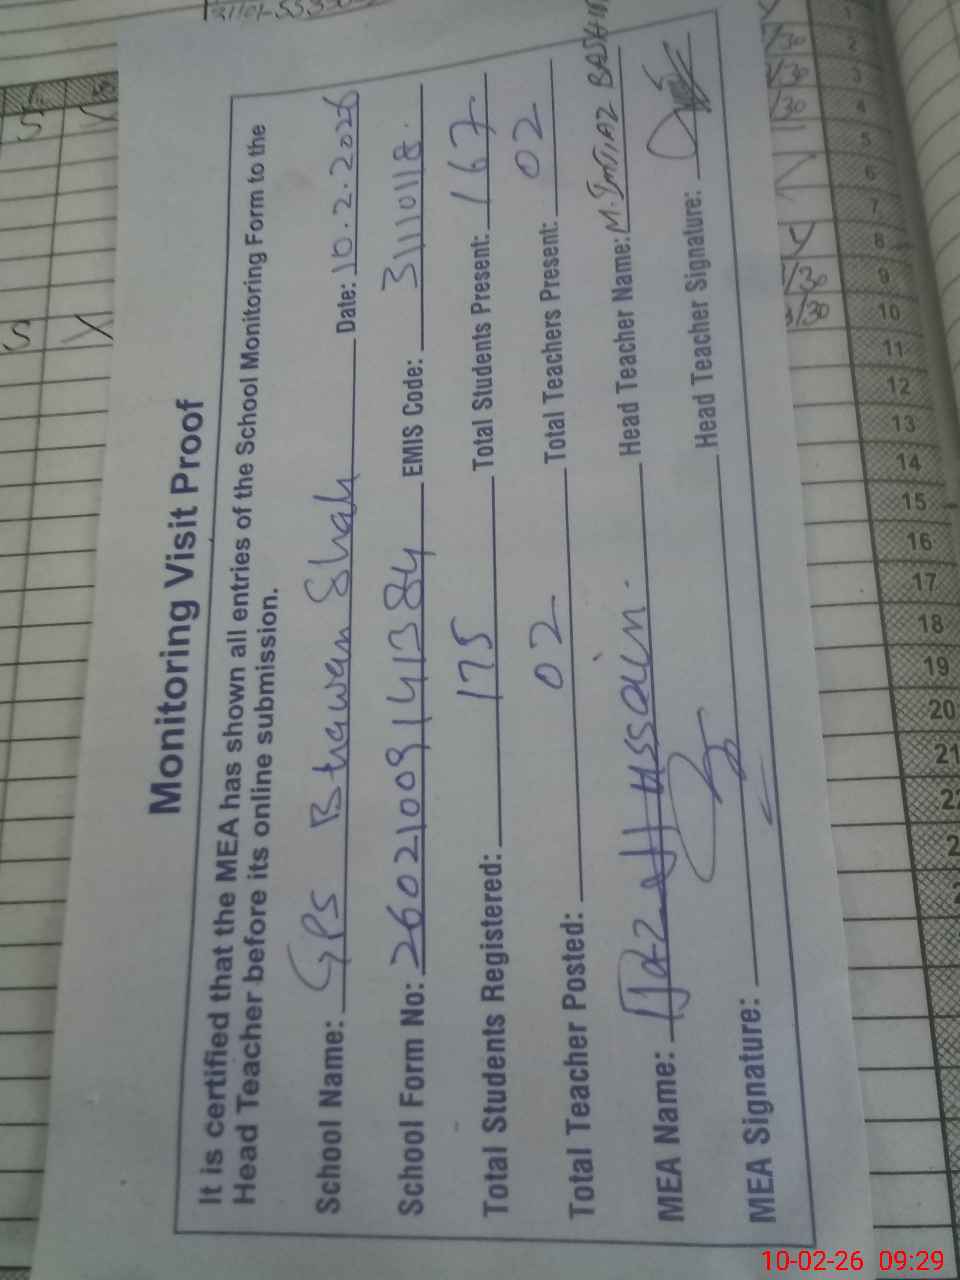 Monitoring Visit Proof
It is certified that the MEA has shown all entries of the School Monitoring Form to the
Head Teacher before its online submission.
School Name: GPS Bhawan Shah Date: 10.2.2026
School Form No: 26021009141384 EMIS Code: 31110118.
Total Students Registered: 175 Total Students Present: 167
Total Teacher Posted: 02 Total Teachers Present: 02
MEA Name: Hussain. Head Teacher Name: M. Imtiaz BASHIR
MEA Signature: Head Teacher Signature:
1
2
3
4
5
6
7
8
9
10
11
12
13
14
15
16
17
18
19
20
21
22
10-02-26 09:29